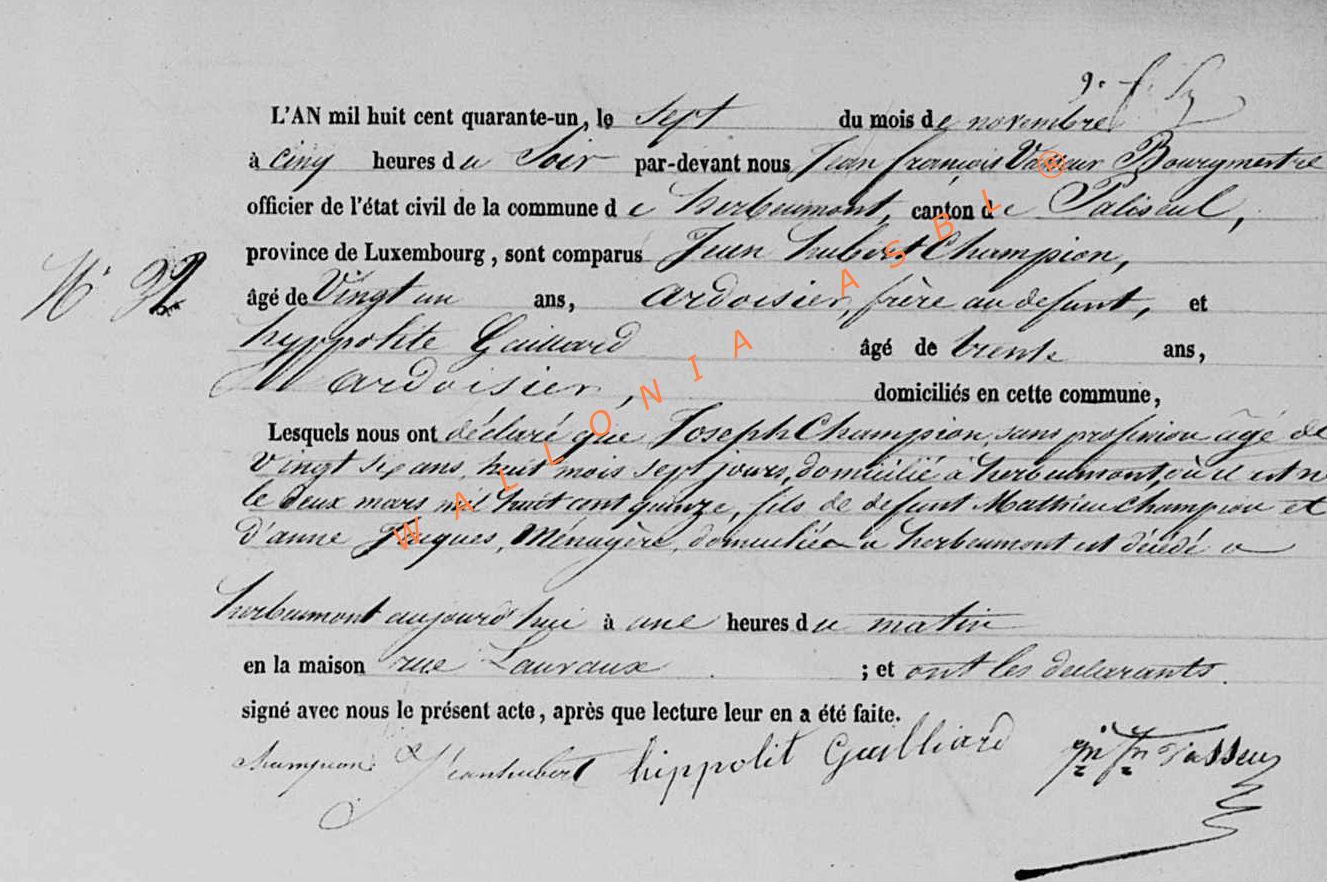 L'AN mil huit cent quarante-un, le sept du mois de novembre
à cinq heures du Soir par-devant nous Jean françois Vasseur Bourgmestre
officier de l'état civil de la commune de herbeumont, canton de Paliseul,
province de Luxembourg, sont comparus Jean hubert Champion,
N° 32
âgé de Vingt un ans, ardoisier, frère au defunt, et
hyppolite Gaillard âgé de trente ans,
ardoisier, domiciliés en cette commune,
Lesquels nous ont déclaré que Joseph Champion, sans profession âgé de
Vingt six ans, huit mois sept jours, domicilié à herbeumont, où il est n
le deux mars mil huit cent quinze, fils de defunt Mathieu Champion et
d'anne Jacques, Ménagère, domiciliée a herbeumont est décédé a
herbeumont aujourd'hui à une heures du matin
en la maison rue Lauvaux ; et ont les declarants
signé avec nous le présent acte, après que lecture leur en a été faite.
Champion Jeanhubert hippolit Guilliard Vasseur
WALLONIA ASBL ®